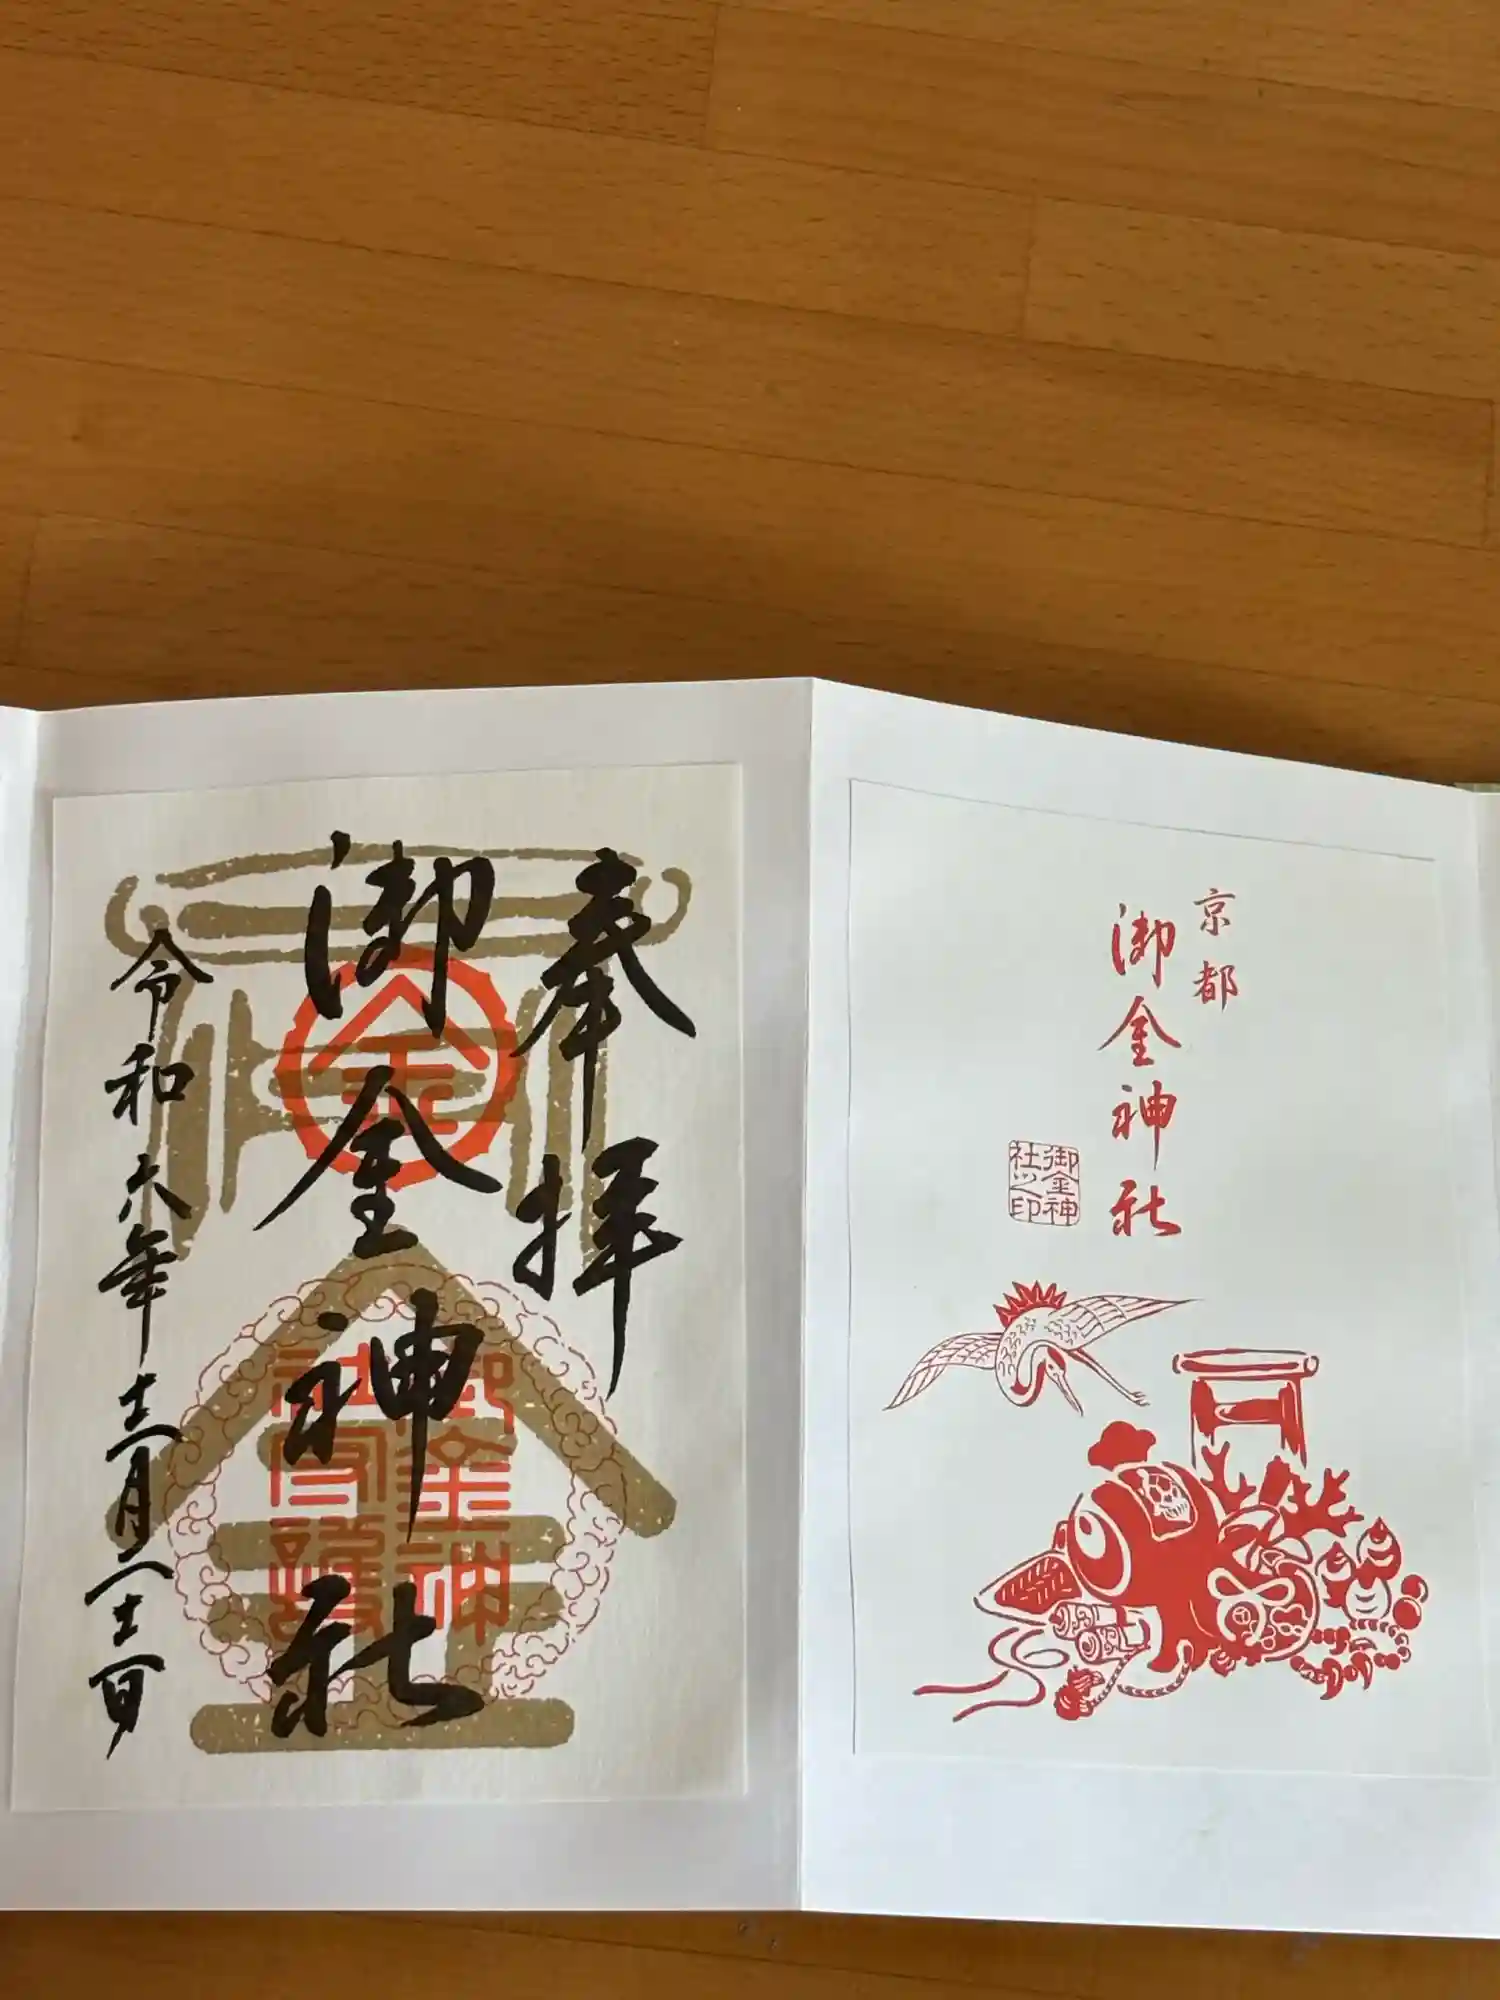 奉拝
御金神社
令和六年十二月二十二日
金
御金神
京都
御金神社
御金神
社之印